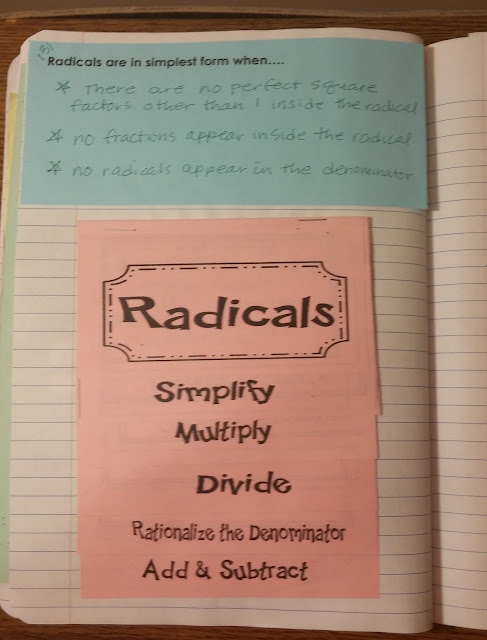 Radicals are in simplest form when....
* There are no perfect square
factors other than 1 inside the radical
* no fractions appear inside the radical
* no radicals appear in the denominator
Radicals
Simplify
Multiply
Divide
Rationalize the Denominator
Add & Subtract